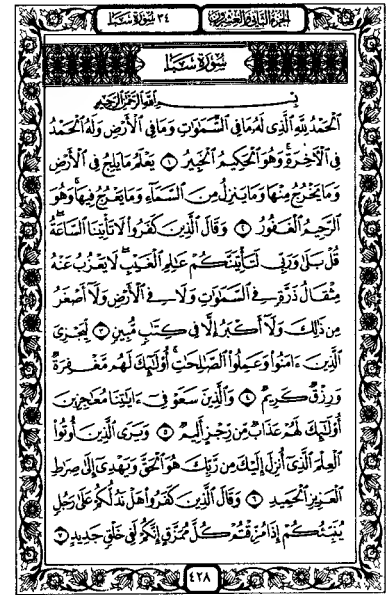 الجزء الثاني والعشرون ٣٤ سورة سبأ
سُورَةُ سَبَإٍ
بِسْمِ اللَّهِ الرَّحْمَٰنِ الرَّحِيمِ
ٱلْحَمْدُ لِلَّهِ ٱلَّذِى لَهُۥ مَا فِى ٱلسَّمَٰوَٰتِ وَمَا فِى ٱلْأَرْضِ وَلَهُ ٱلْحَمْدُ
فِى ٱلْءَاخِرَةِ ۚ وَهُوَ ٱلْحَكِيمُ ٱلْخَبِيرُ ١ يَعْلَمُ مَا يَلِجُ فِى ٱلْأَرْضِ
وَمَا يَخْرُجُ مِنْهَا وَمَا يَنزِلُ مِنَ ٱلسَّمَآءِ وَمَا يَعْرُجُ فِيهَا ۚ وَهُوَ
ٱلرَّحِيمُ ٱلْغَفُورُ ٢ وَقَالَ ٱلَّذِينَ كَفَرُوا۟ لَا تَأْتِينَا ٱلسَّاعَةُ ۖ
قُلْ بَلَىٰ وَرَبِّى لَتَأْتِيَنَّكُمْ عَٰلِمِ ٱلْغَيْبِ ۖ لَا يَعْزُبُ عَنْهُ
مِثْقَالُ ذَرَّةٍ فِى ٱلسَّمَٰوَٰتِ وَلَا فِى ٱلْأَرْضِ وَلَآ أَصْغَرُ
مِن ذَٰلِكَ وَلَآ أَكْبَرُ إِلَّا فِى كِتَٰبٍ مُّبِينٍ ٣ لِّيَجْزِىَ
ٱلَّذِينَ ءَامَنُوا۟ وَعَمِلُوا۟ ٱلصَّٰلِحَٰتِ ۚ أُو۟لَٰٓئِكَ لَهُم مَّغْفِرَةٌ
وَرِزْقٌ كَرِيمٌ ٤ وَٱلَّذِينَ سَعَوْ فِىٓ ءَايَٰتِنَا مُعَٰجِزِينَ
أُو۟لَٰٓئِكَ لَهُمْ عَذَابٌ مِّن رِّجْزٍ أَلِيمٌ ٥ وَيَرَى ٱلَّذِينَ أُوتُوا۟
ٱلْعِلْمَ ٱلَّذِىٓ أُنزِلَ إِلَيْكَ مِن رَّبِّكَ هُوَ ٱلْحَقَّ وَيَهْدِىٓ إِلَىٰ صِرَٰطِ
ٱلْعَزِيزِ ٱلْحَمِيدِ ٦ وَقَالَ ٱلَّذِينَ كَفَرُوا۟ هَلْ نَدُلُّكُمْ عَلَىٰ رَجُلٍ
يُنَبِّئُكُمْ إِذَا مُزِّقْتُمْ كُلَّ مُمَزَّقٍ إِنَّكُمْ لَفِى خَلْقٍ جَدِيدٍ ٧
٤٢٨